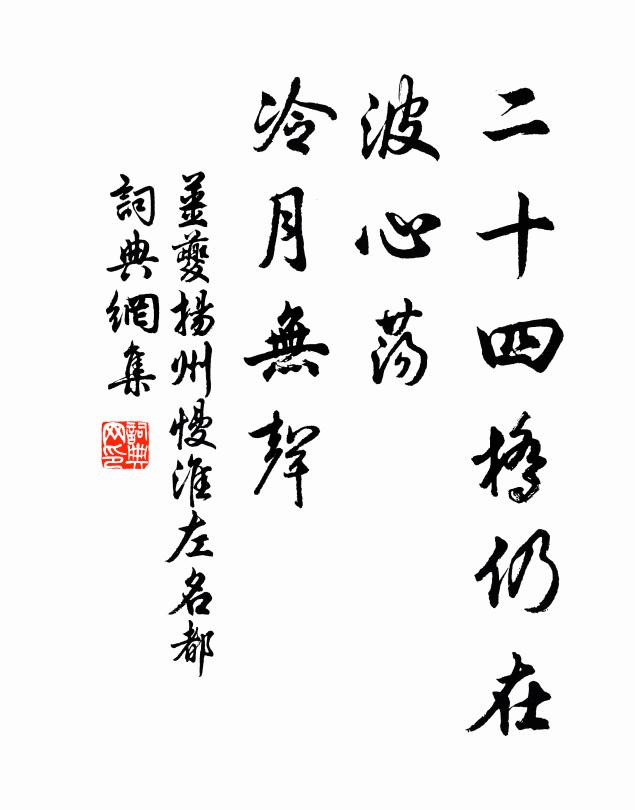 二十四橋仍在
波心蕩
冷月無聲
薑夔揚州慢淮左名都
詞典網集
詞典网印